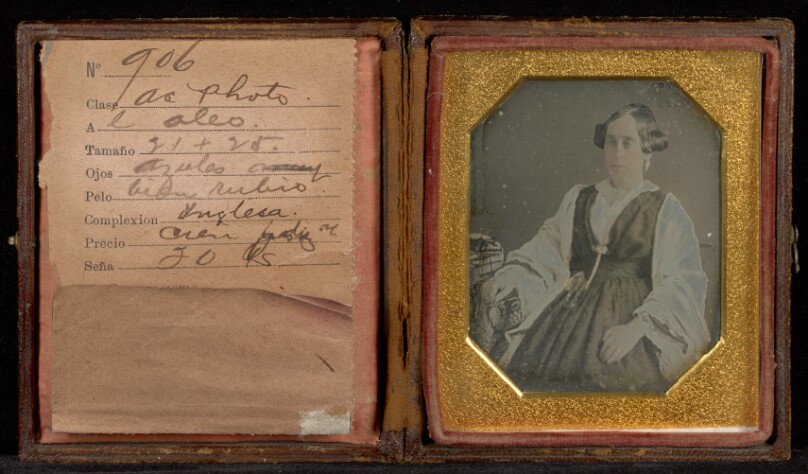 Nº 906
Clase as photo.
A l oleo.
Tamaño 21 + 25.
Ojos azules
Pelo bien rubio.
Complexion Inglesa.
Precio cien
Seña 50